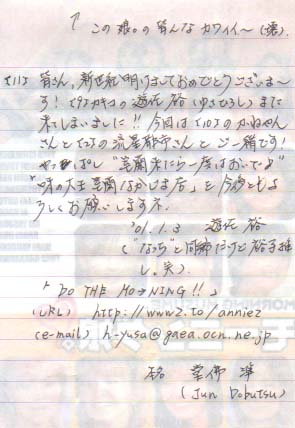 ↑この娘。の皆んなカワイイ〜(爆)
皆さん、新世紀明けましておめでとうございま〜
す! イタメカキコの遊佐 裕(ゆさひろし)また
来てしまいました!! 今回は
さんと の流星都市さんとご一緒です!
やっぱし"室蘭来たら一度はおいでよ"
"味の大王室蘭なかじま店"を今後ともよ
ろしくお願いしますネ。
'01.1.3 遊佐 裕
("なっち"と同郷だけど裕子推
し。笑)
「DO THE MO→NING!!」
(URL) http://www2.to/anniez
(e-mail) h-yusa@gaea.ocn.ne.jp
(Jun Dobutsu)